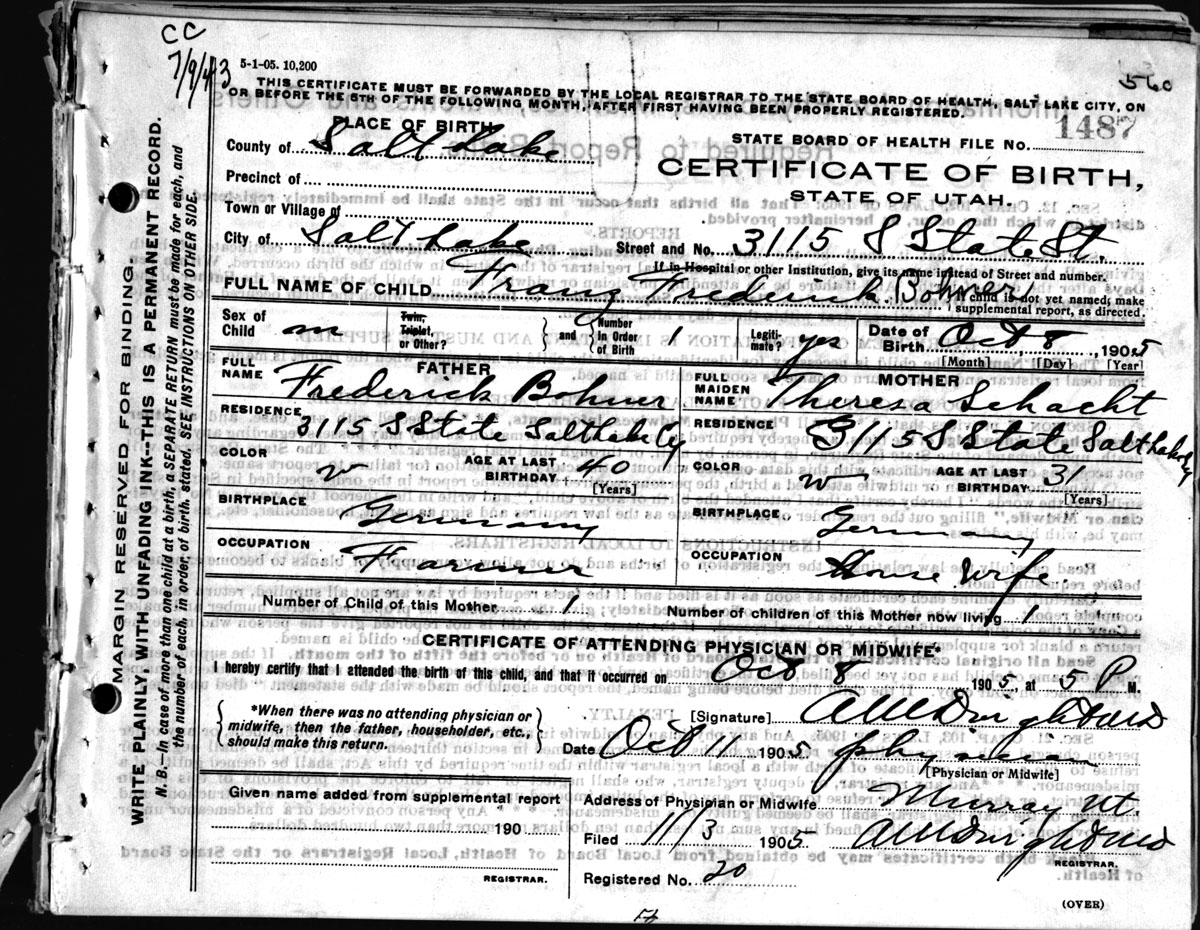 CC
7/9/43
5-1-05. 10,200
560
THIS CERTIFICATE MUST BE FORWARDED BY THE LOCAL REGISTRAR TO THE STATE BOARD OF HEALTH, SALT LAKE CITY, ON
OR BEFORE THE 5TH OF THE FOLLOWING MONTH, AFTER FIRST HAVING BEEN PROPERLY REGISTERED.
PLACE OF BIRTH
STATE BOARD OF HEALTH FILE No. 1487
County of Salt Lake
CERTIFICATE OF BIRTH,
Precinct of
STATE OF UTAH.
Town or Village of
City of Salt Lake Street and No. 3115 S State St.
If in Hospital or other Institution, give its name instead of Street and number.
FULL NAME OF CHILD Franz Frederick Bohner If child is not yet named, make supplemental report, as directed.
Sex of Child m Twin, Triplet, or Other? and Number in Order of Birth 1 Legitimate? yes Date of Birth Oct 8, 1905
[Month] [Day] [Year]
FATHER
FULL NAME Frederick Bohner
RESIDENCE 3115 S State Salt Lake Cy
COLOR w AGE AT LAST BIRTHDAY 40
[Years]
BIRTHPLACE Germany
OCCUPATION Farmer
MOTHER
FULL MAIDEN NAME Theresa Schacht
RESIDENCE 3115 S State Salt Lake Cy
COLOR w AGE AT LAST BIRTHDAY 31
[Years]
BIRTHPLACE Germany
OCCUPATION House Wife
Number of Child of this Mother 1 Number of children of this Mother now living 1
CERTIFICATE OF ATTENDING PHYSICIAN OR MIDWIFE*
I hereby certify that I attended the birth of this child, and that it occurred on Oct 8 1905, at 5 P M.
*When there was no attending physician or
midwife, then the father, householder, etc.,
should make this return.
[Signature]
Date Oct 11 1905 physician
[Physician or Midwife]
Given name added from supplemental report
190
REGISTRAR.
Address of Physician or Midwife Murray Ut
Filed 11/3 1905
REGISTRAR.
Registered No. 20
(OVER)
MARGIN RESERVED FOR BINDING.
WRITE PLAINLY, WITH UNFADING INK—THIS IS A PERMANENT RECORD.
N. B.—In case of more than one child at a birth, a SEPARATE RETURN must be made for each, and
the number of each, in order, of birth stated. SEE INSTRUCTIONS ON OTHER SIDE.